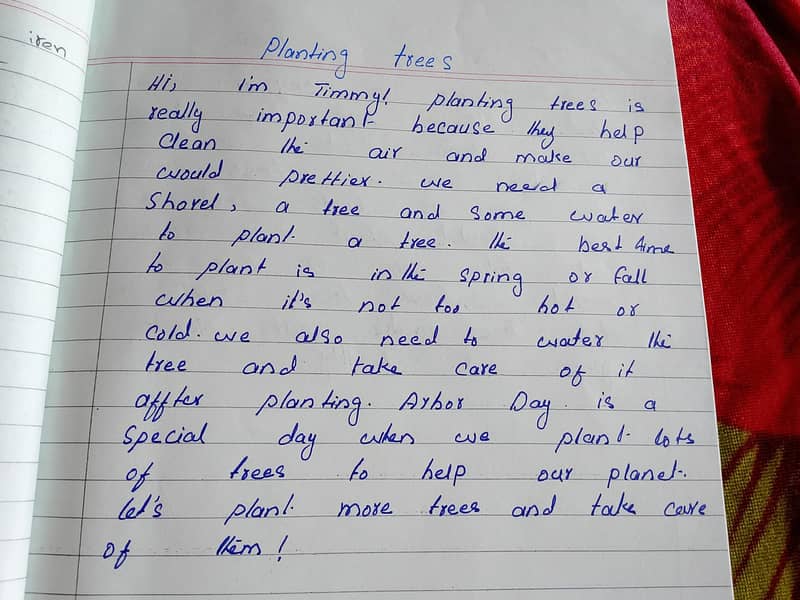 iren
Planting trees
Hi, I'm Timmy! planting trees is
really important because they help
clean the air and make our
would prettier. we need a
Shovel, a tree and some water
to plant a tree. the best time
to plant is in the spring or fall
when it's not too hot or
cold. we also need to water the
tree and take care of it
affter planting. Arbor Day. is a
special day when we plant lots
of trees to help our planet.
let's plant more trees and take care
of them!